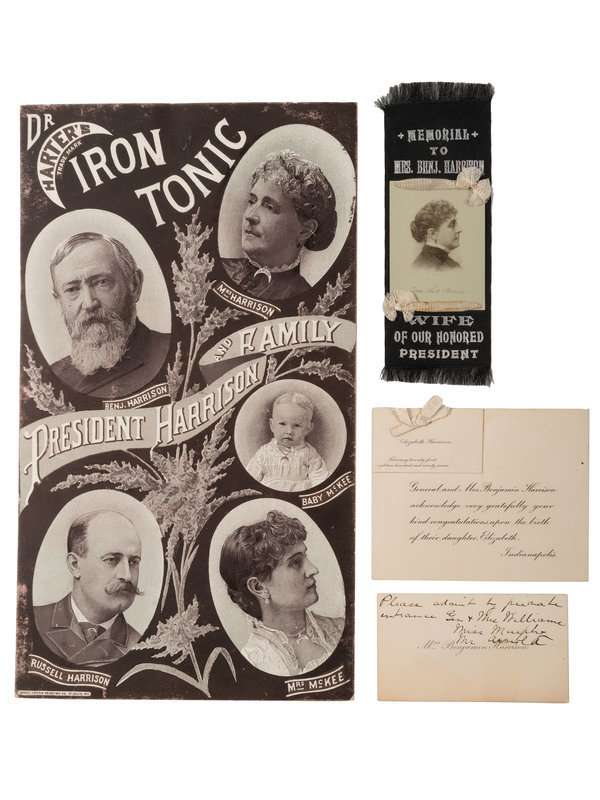 DR
HARTER'S
TRADE MARK
IRON
TONIC
MRS HARRISON
BENJ. HARRISON
PRESIDENT HARRISON AND FAMILY
BABY MCKEE
RUSSELL HARRISON
MRS MCKEE
MEMORIAL
TO
MRS. BENJ. HARRISON
WIFE
OF OUR HONORED
PRESIDENT
Elizabeth Harrison
February twenty first
eighteen hundred and ninety seven
General and Mrs. Benjamin Harrison
acknowledge very gratefully your
kind congratulations upon the birth
of their daughter, Elizabeth.
Indianapolis
Please admit by private
entrance Gen & Mrs Williams
Miss Murphy
Mr
Mrs. Benjamin Harrison